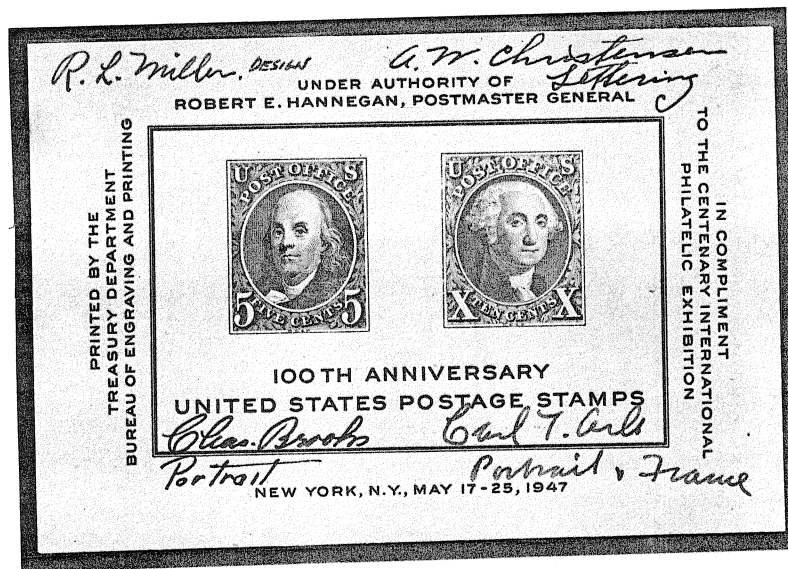 R. L. Miller. DESIGN
A. W. Christensen
Lettering
UNDER AUTHORITY OF
ROBERT E. HANNEGAN, POSTMASTER GENERAL
PRINTED BY THE
TREASURY DEPARTMENT
BUREAU OF ENGRAVING AND PRINTING
U S
POST OFFICE
5 FIVE CENTS 5
U S
POST OFFICE
X TEN CENTS X
IN COMPLIMENT
TO THE CENTENARY INTERNATIONAL
PHILATELIC EXHIBITION
100TH ANNIVERSARY
UNITED STATES POSTAGE STAMPS
Chas. Brooks
Portrait
Carl T. Arlt
Portrait & Frame
NEW YORK, N.Y., MAY 17-25, 1947